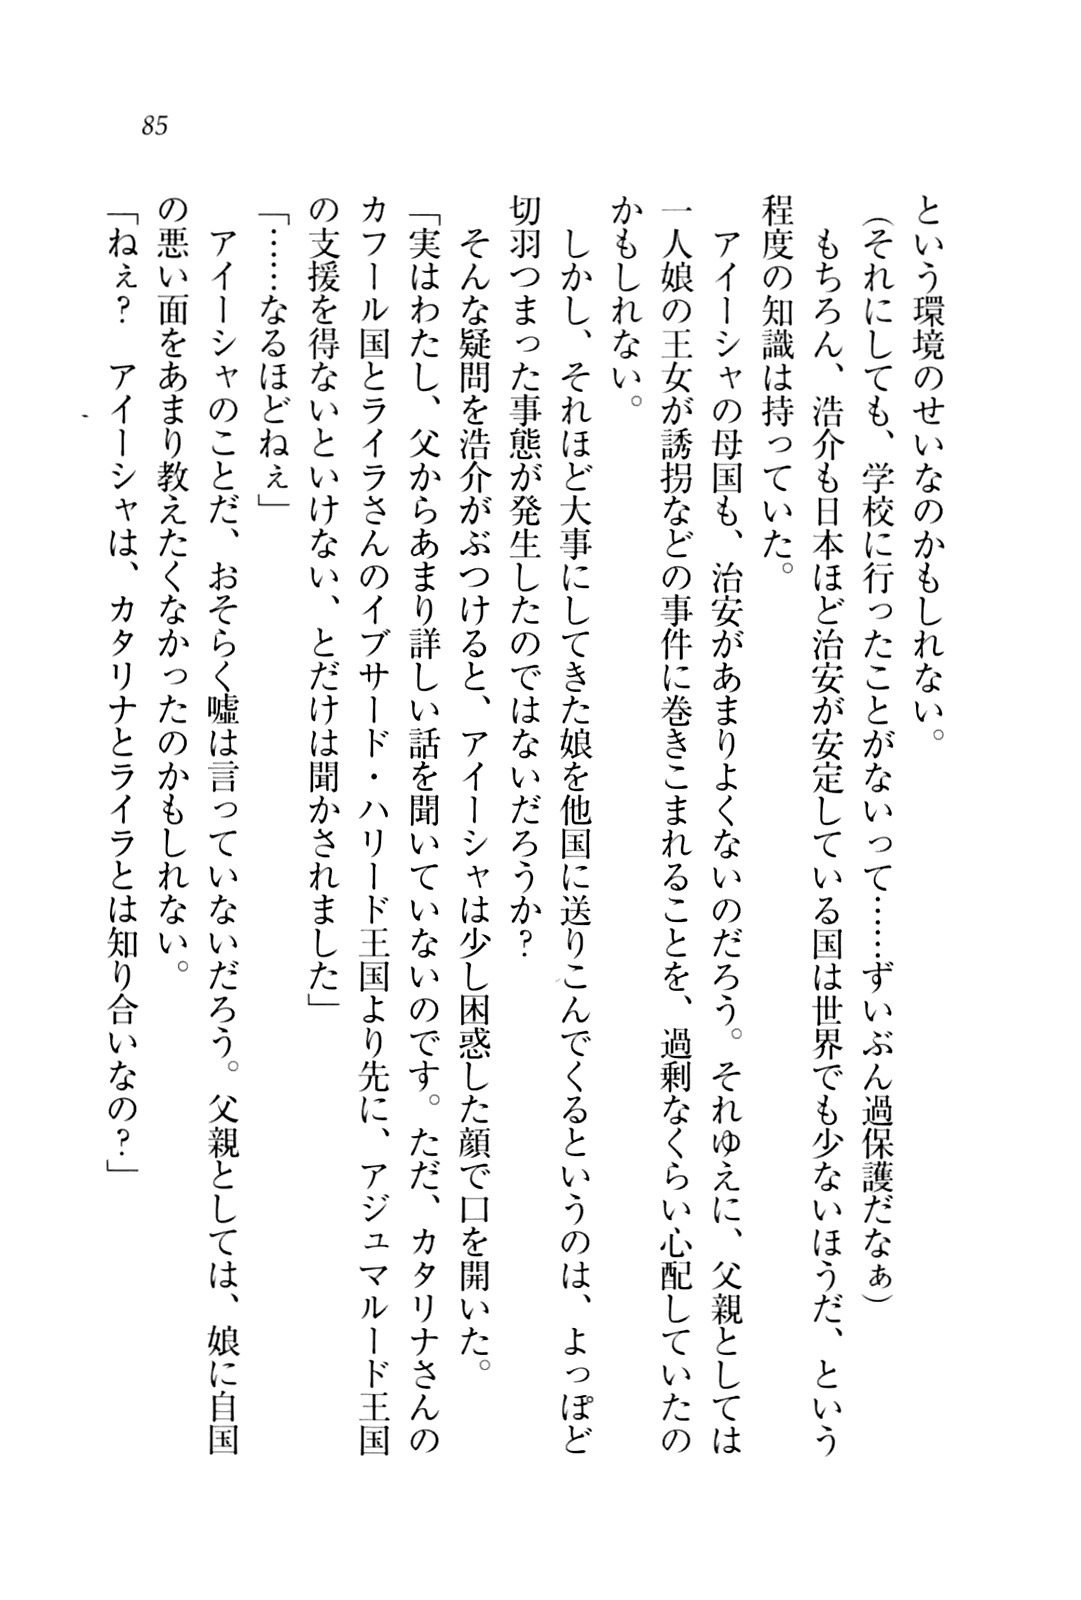 85
という環境のせいなのかもしれない。
（それにしても、学校に行ったことがないって……ずいぶん過保護だなぁ）
もちろん、浩介も日本ほど治安が安定している国は世界でも少ないほうだ、という
程度の知識は持っていた。
アイーシャの母国も、治安があまりよくないのだろう。それゆえに、父親としては
一人娘の王女が誘拐などの事件に巻きこまれることを、過剰なくらい心配していたの
かもしれない。
しかし、それほど大事にしてきた娘を他国に送りこんでくるというのは、よっぽど
切羽つまった事態が発生したのではないだろうか？
そんな疑問を浩介がぶつけると、アイーシャは少し困惑した顔で口を開いた。
「実はわたし、父からあまり詳しい話を聞いていないのです。ただ、カタリナさんの
カフール国とライラさんのイブサード・ハリード王国より先に、アジュマルード王国
の支援を得ないといけない、とだけは聞かされました」
「……なるほどねぇ」
アイーシャのことだ、おそらく嘘は言っていないだろう。父親としては、娘に自国
の悪い面をあまり教えたくなかったのかもしれない。
「ねぇ？　アイーシャは、カタリナとライラとは知り合いなの？」